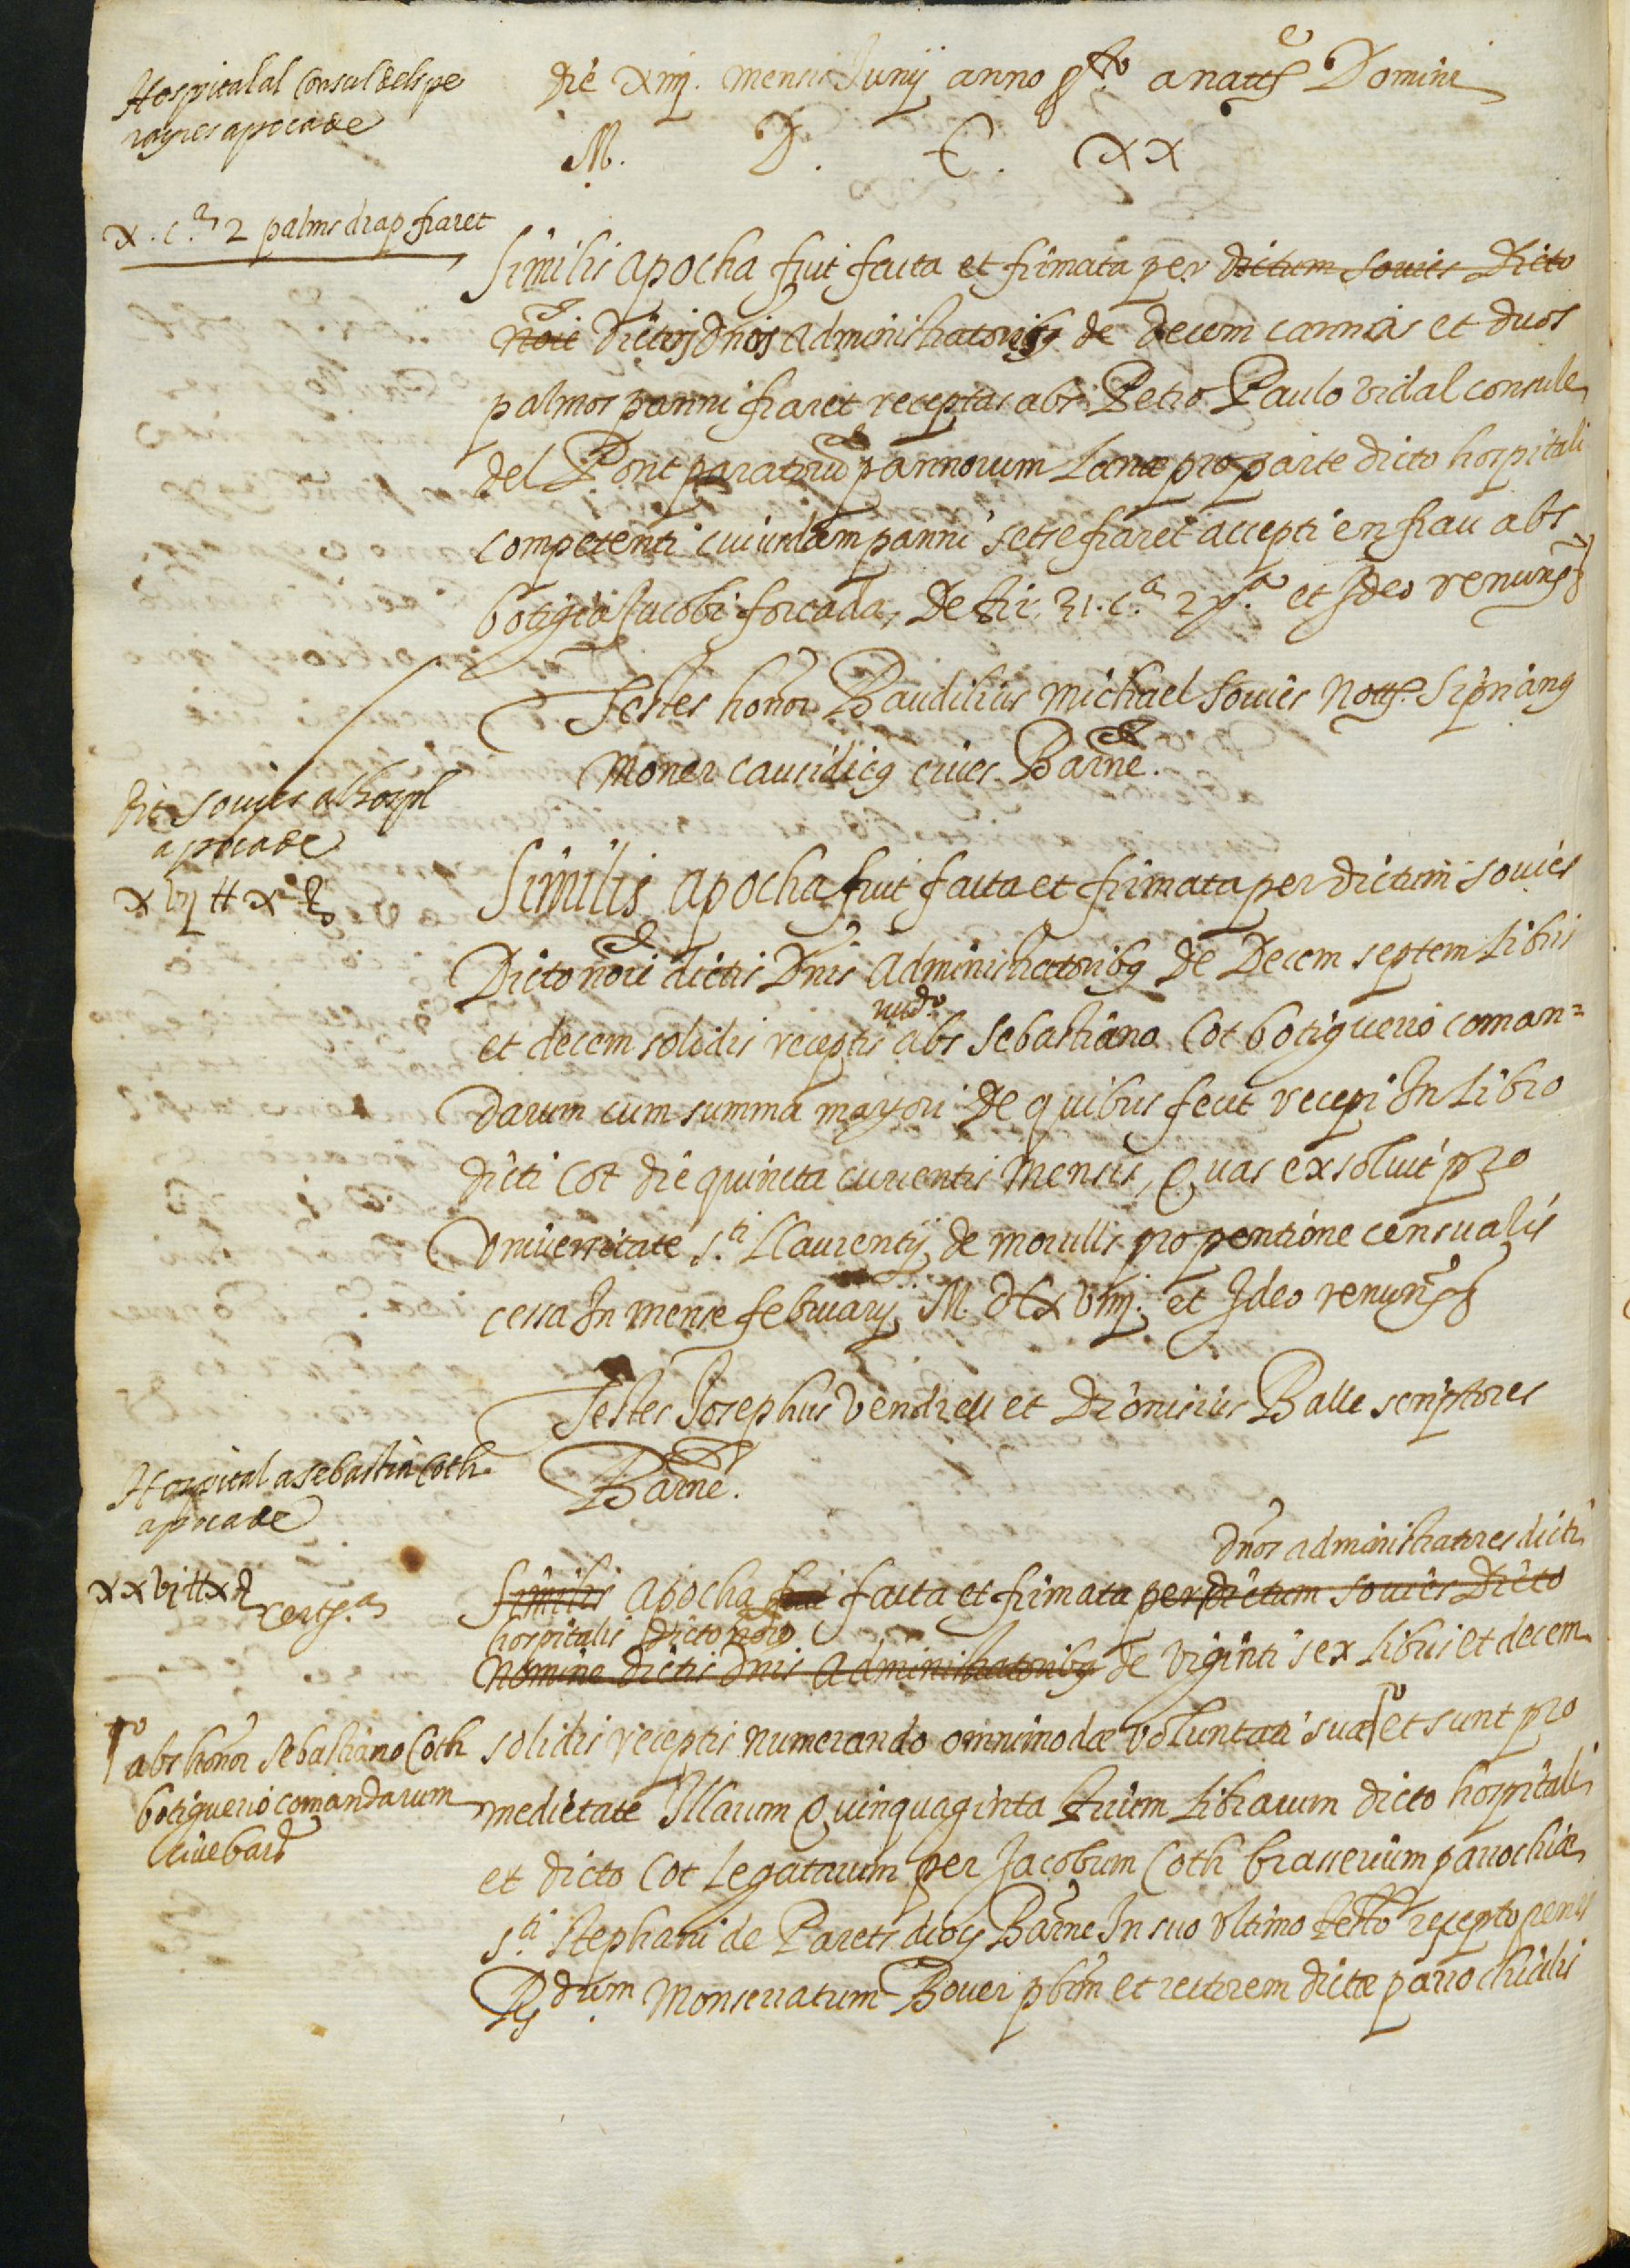 Hospital al Consul dels pe
rayres apocade
Die xiiij. mensis Junij anno pto. a natte Domini
M. D. C. XX
X. c.as 2 palms drap fiaret
Similis apocha fuit facta et firmata per dictum Souies Dicto
noie dictis dnis administratoribus de decem cannas et duos
palmos panni fiaret receptas abs Petro Paulo Vidal consule
del Pont paratorum pannorum Lanæ pro parte dicto hospitali
competenti cuiusdam panni setse fiaret accepti en frau abs
botigia Jacobi forcada, De tir. 21. c.as 2 p.a et Ideo renuns
Testes honor Baudilius Michael Souies Nott. Siprianus
Moner causidicus ciues Barne.
Dit Souies al hospl
apocade
x vij ℔ x ß
Similis apocha fuit facta et firmata per dictum Souies
Dicto noie dictis Dnis administratoribus de Decem septem Libris
et decem solidis receptis nudo abs Sebastiano Cot botiguerio coman=
darum cum summa mayori de quibus fecit recepi In Libro
dicti Cot die quincta currentis mensis, Quas exsoluit pro
Vniuersitate s.ti Llaurentij de morullis pro pentione censualis
cessa In mense februarij M. DCxviiij. et Ideo renuns
Testes Josephus Vendrell et Dionisius Balle scriptores
Barne.
Hospital a sebastia Coth
apocade
xxvi ℔ x ß
certs.as
Dnos administratores dicti
Similis apocha fuit facta et firmata per dictum Souies Dicto
hospitalis Dicto noie
Nomine dictis Dnis administratoribus de Viginti sex Libris et decem
solidis receptis numerando omnimodæ voluntati suæ et sunt pro
abs honor Sebastiano Coth
botiguerio comandarum
ciue bare
medietate Illarum Quinquaginta trium Librarum dicto hospitali
et dicto Cot Legatarum per Jacobum Coth brasserium parrochiæ
s.ti Stephani de Parets diocs Barne In suo vltimo testto recepto penes
Rdum. Monserratum Bouer pbrm et rectorem dictæ parrochialis